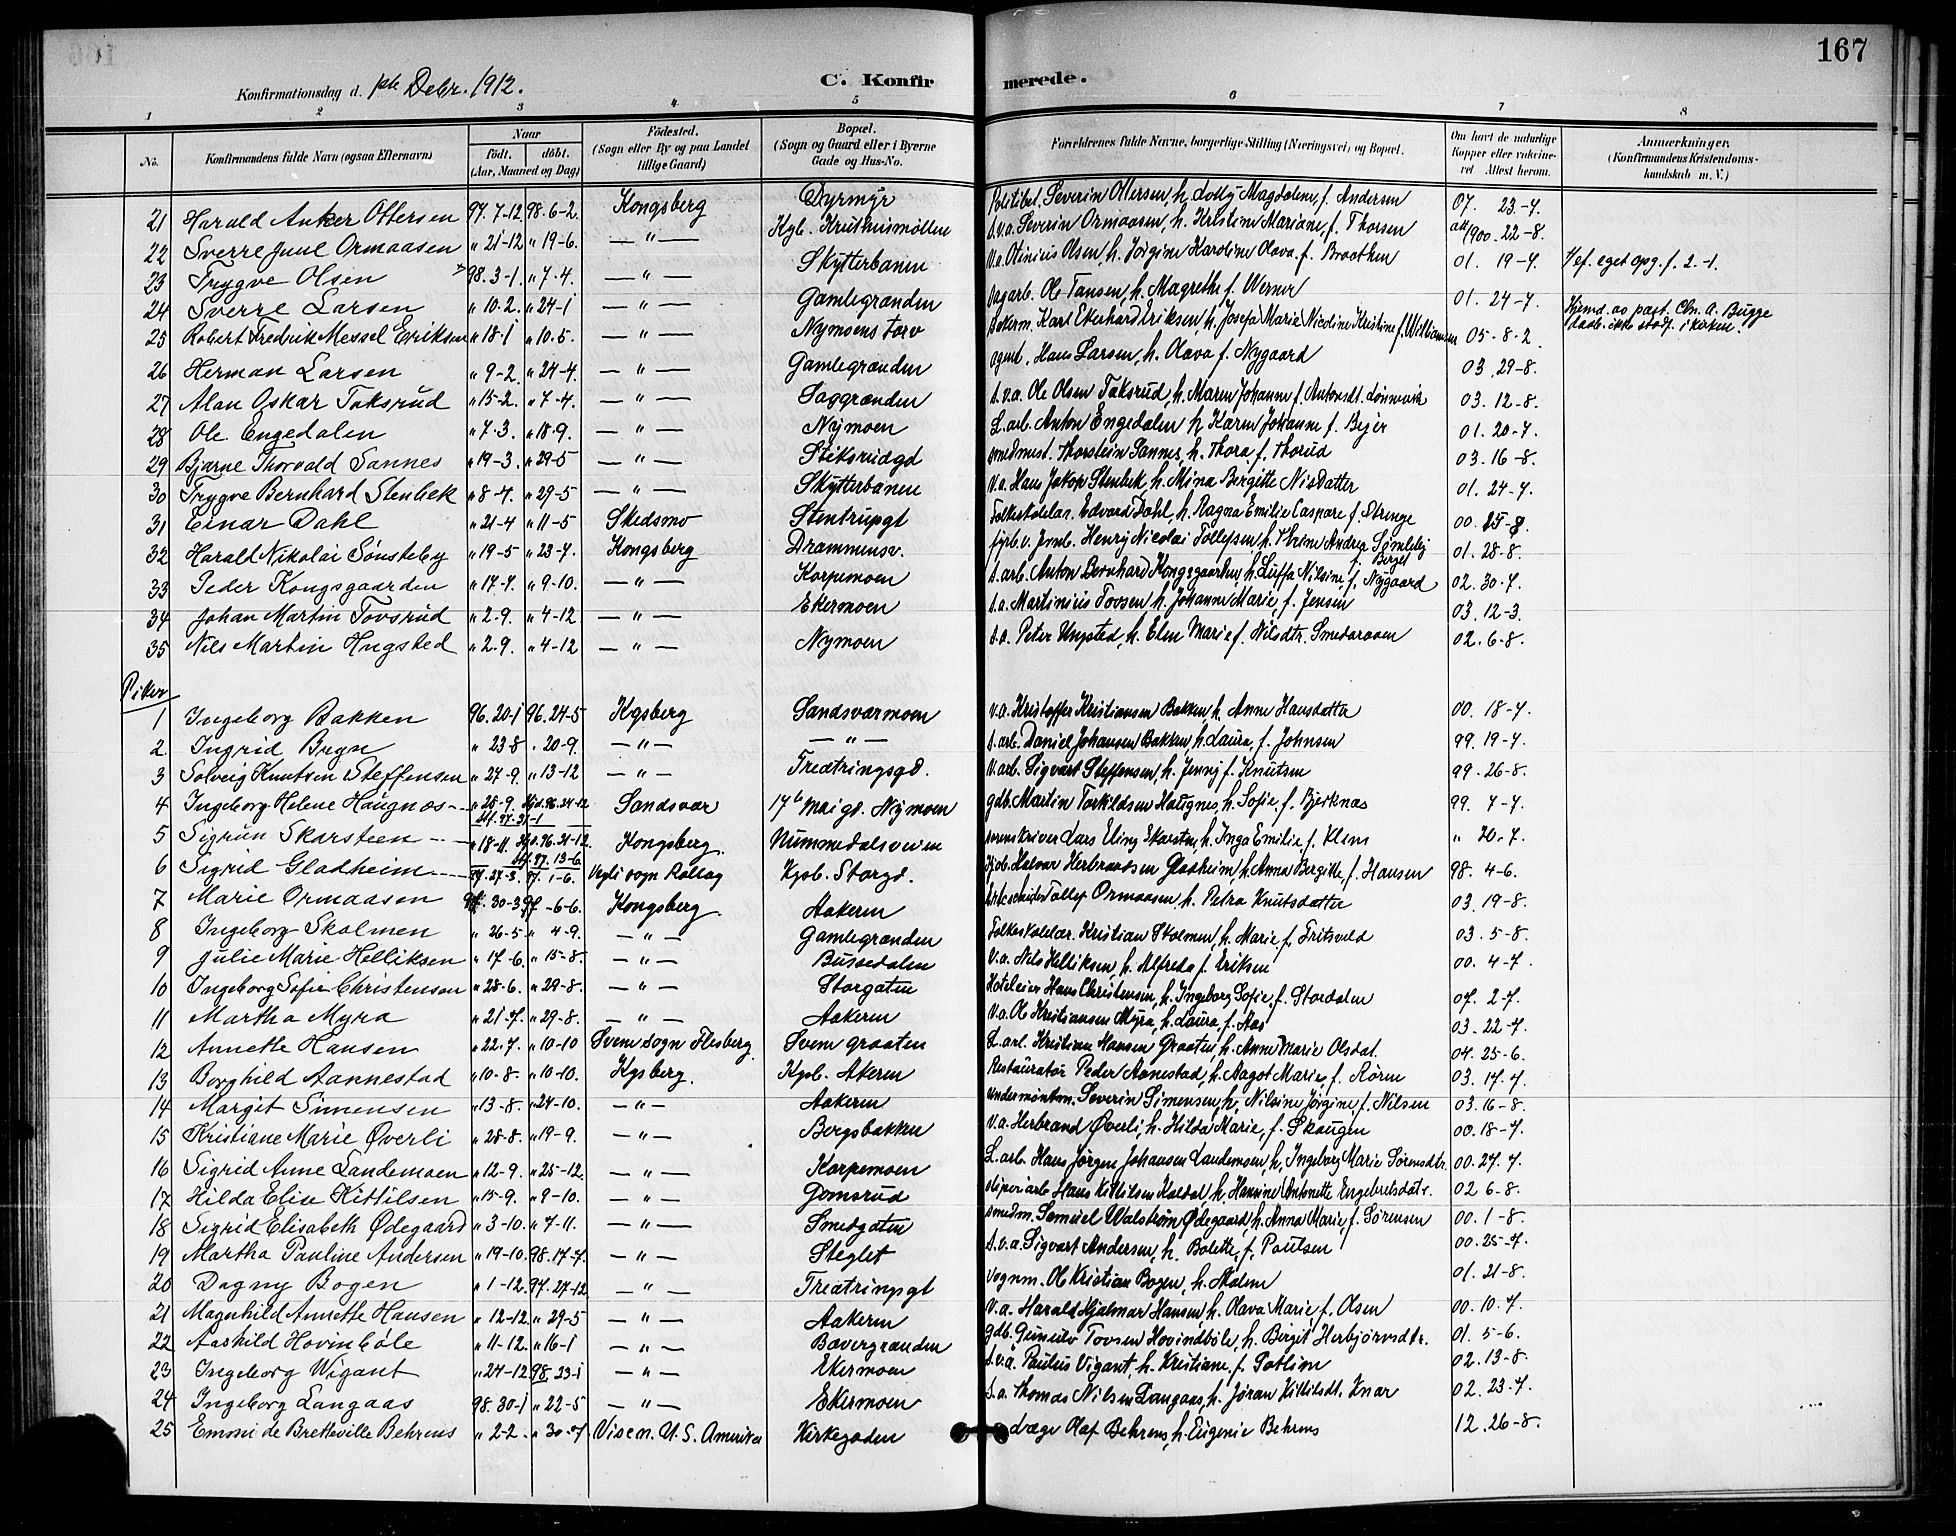 167
Konfirmationsdag d. 1ste Decbr. 1912. C. Konfirmerede.
1 2 3 4 5 6 7 8
No. Konfirmandens fulde Navn (ogsaa Efternavn) Naar født. døbt. (Aar, Maaned og Dag) Fødested. (Sogn eller By og paa Landet tillige Gaard) Bopæl. (Sogn og Gaard eller i Byerne Gade og Hus-No. Forældrenes fulde Navne, borgerlige Stilling (Næringsvei) og Bopæl. Om havt de naturlige Kopper eller vakcineret Attest herom. Anmærkninger, (Konfirmandens Kristendomskundskab m. V.)
21 Harald Anker Ottersen 97. 7-12 98. 6-2. Kongsberg Dyrmyr Politibet. Severin Ottersen, h. Lolly Magdalene, f. Andersen 07. 23-4.
22 Sverre Juul Ormaasen " 21-12 " 19-6. — " — Kgb. Kruthusmøllen s.v.a. Severin Ormaasen, h. Kristine Mariane, f. Thorsen 1900. 22-8.
23 Trygve Olsen 98. 3-1. " 7. 4. — " — Skytterbanen v.a. Olinius Olsen, h. Jørgine Karoline Olava. f. Braathen 01. 19-4. Ief. eget opg. f. 2.-1.
24 Sverre Larsen " 10. 2. " 24-1 — " — Gamlegrænden Dagarb. Ole Tansen, h. Magrethe f. Werner 01. 24-7.
25 Robert Fredrik Messel Eriksen " 18-1 " 10. 5. — " — Nymoens torv Bakerm. Karl Ekerhard Eriksen, h. Josefa Marie Nicoline Kristine f. Williamsen 05-8-2. Hjemd. av past. Chr. A. Bugge Daab. ikke stadf. i kirken.
26 Herman Larsen " 9-2. " 24-4. — " — Gamlegrænden Agent. Hans Larsen, h. Olava f. Nygaard 03. 29-8.
27 Alan Oskar Taksrud " 15-2. " 7-4. — " — Saggrænden s.v.a. Ole Olsen Taksrud, h. Maren Johanne f. Antonsdt. Lønnevik 03. 12-8.
28 Ole Engedalen " 7. 3. " 18-9. — " — Nymoen L.arb. Anton Engedalen h. Karen Johanne f. Bejer 01. 20-7.
29 Bjarne Thorvald Sannes " 19-3. " 29-5 — " — Stiksrudgd Smedmest. Thorstein Sannes, h. Thora f. Thorud 03. 16-8.
30 Trygve Bernhard Stenbek " 8-4. " 29-5 — " — Skytterbanen v.a. Hans Jakop Stenbek, h. Mina Bergitte Nisdatter 01. 24-7.
31 Einar Dahl " 21-4 " 11-5 Skedsmo Stentrupgt Folkeskolelær. Edvard Dahl, h. Ragna Emilie Caspare f. Strenge 00. 25-8.
32 Harald Nikolai Sønsteby " 19-5 " 23-7. Kongsberg Drammensv. fyrb. v. Jrnb. Henry Nicolai Tollefsen, h. Threne Andrea Sønsteby f. Berget 01. 28-8.
33 Peder Kongsgaarden " 17-7. " 9-10. — " — Korpemoen s.arb. Anton Bernhard Kongsgaarden, h. Luffa Nilsine f. Nygaard 02. 30-7.
34 Johan Martin Tovsrud " 2-9. " 4-12 — " — Ekermoen s.a. Martinius Tovsen, h. Johanne Marie f. Jensen 03. 12-3.
35 Nils Martin Ungsted " 2. 9. " 4-12 — " — Nymoen s.a. Peter Ungsted, h. Elen Marie f. Nilsdtr. Smedaraasen 02. 6-8.
Piker
1 Ingeborg Bakken 96. 20-1 96. 24-5 Kgsberg Sandsværmoen v.a. Kristoffer Kristiansen Bakken h. Anne Hansdatter 00. 18-7.
2 Ingrid Bryn " 23-8 " 20-9. — " — — " — s.arb. Daniel Johansen Bakken, h. Laura, f. Johnsen 99. 19-7.
3 Solveig Knutsen Steffensen " 27-9. " 13-12 — " — Treatringsgd. v.arb. Sigvart Steffensen, h. Jenny f. Knutsen 99. 26-8.
4 Ingeborg Helene Haugnæs " 28-9. Hjd. 96. 24-12 Stf. 97. 31-1 Sandsvær 17de mai gd. Nymoen gdb. Martin Torkildsen Haugnes, h. Sofie, f. Bjerknæs 99. 7-7.
5 Sigrun Skarsteen " 18-11. Hjd. 96. 31-12. Stf. 97. 13-6. Kongsberg. Nummedalsveien Sorenskriver Lars Eling Skarsten, h. Inga Emilie, f. Klem " 20-7.
6 Sigrid Gladheim 97. 27-3. 97. 1-6. Vegli sogn Rollag Kgsb. Storgd. Gjob. Halvar Herbrandsen Gladheim, h. Anna Bergitte, f. Hansen 98. 4-6.
7 Marie Ormaasen 97. 30-3. 97. -6-6. Kongsberg. Aakeren Arbeider Tollef Ormaasen h. Petra Knutsdatter 03. 19-8.
8 Ingeborg Skolmen " 26-5 " 4-9. — " — Gamlegrænden Folkeskolelær. Kristian Skolmen, h. Marie f. Fritsveld 03. 5-8.
9 Julie Marie Helliksen " 17-6. " 15-8. — " — Bussedalen v.a. Nils Helliksen, h. Alfreda f. Eriksen 00. 4-7.
10 Ingeborg Sofie Christensen " 28-6. " 29-8. — " — Storgaten Hoteleier Hans Christensen, h. Ingeborg Sofie, f. Stordalen 07. 2-7.
11 Martha Myra " 21-7. " 29-8. — " — Aakeren v.a. Ole Kristiansen Myra, h. Laura, f. Aas 03. 22-7.
12 Annette Hansen " 22-7. " 10-10 Svene sogn Flesberg. Svene graaten L.arb. Kristian Hansen Graaten, h. Anne Marie Olsdat. 04. 25-6.
13 Borghild Aannestad " 10-8. " 10-10. Kgsberg. Kgsb. Akeren Restauratør Peder Aanestad, h. Aagot Marie, f. Røren 03. 17-7.
14 Margit Simensen " 13-8. " 24-10. — " — Aakeren Undermøntm. Severin Simensen, h. Nilsine Jørgine, f. Nilsen 03. 16-8.
15 Kristiane Marie Øverli " 28-8. " 19-9. — " — Bergsbakken v.a. Herbrand Øverli, h. Hilda Marie, f. Skaugen 00. 18-7.
16 Sigrid Anne Landemoen " 12-9. " 25-12. — " — Korpemoen L.arb. Hans Jørgen Johansen Landemoen, h. Ingeborg Marie Sørensdtr. 00. 27. 7.
17 Hilda Elise Kittilsen " 15-9. " 9-10. — " — Gomsrud sliperiarb Hans Kittilsen Kaldal h. Hansine Antonette Engebretsdatr. 02 6-8.
18 Sigrid Elisabeth Ødegaard " 3-10. " 7-11. — " — Smedgaten smedm. Samuel Walstrøm Ødegaard, h. Anna Marie, f. Sørensen 00. 1-8.
19 Martha Pauline Andersen " 19-10. 98. 17-7. — " — Steglet s.v.a. Sigvart Andersen, h. Bolette, f. Paulsen 00. 25-7.
20 Dagny Bogen " 1-12. 97. 27-12. — " — Treatringsgt vognm. Ole Kristian Bogen, h. Malene 01. 21-8.
21 Magnhild Annette Hansen " 12-12. " 29-5 — " — Aakeren v.a. Harald Hjalmar Hansen, h. Olava Marie, f. Olsen 00. 10. 7.
22 Aashild Hovinbøle " 11-12. " 16-1 — " — Bævergrænden gdb. Gunulv Tovsen Hovindbøle, h. Birgit Herbjørnsdtr. 01. 5-6.
23 Ingeborg Wigant " 24-12. 98. 23-1 — " — Ekermoen s.v.a. Paulus Vigant, h. Kristiane, f. Sotlien 02. 13-8.
24 Ingeborg Langaas 98. 30-1 " 22-5 — " — Ekermoen s.a. Thomas Nilsen Langaas, h. Jøran Kittilsdt. Knar 02. 23. 7.
25 Emosu de Bretteville Behrens " 2-2. " 30-7 Visen. U. S. Amerika Kirkegaden dræge Olaf Behrens, h. Eugenie Behrens 12. 26-8.